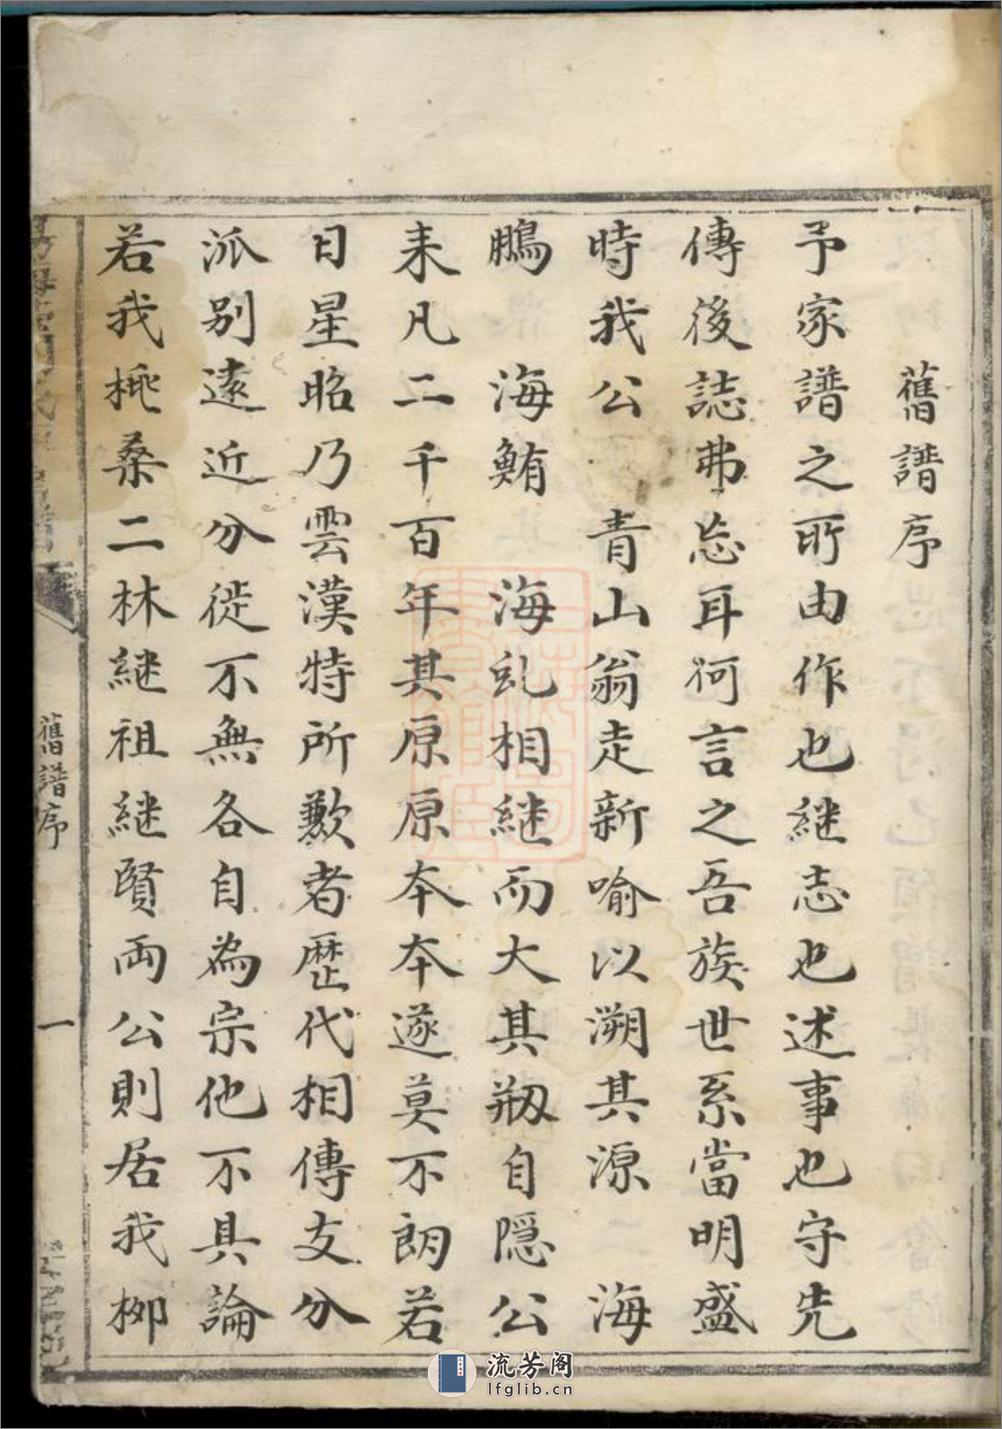 舊譜序
予家譜之所由作也継志也述事也守先
傳後誌弗忘耳何言之吾族世系當明盛
時我公 青山翁走新喻以溯其源 海
鵬 海鮪 海乩相継而大其剏自隠公
耒凡二千百年其原原本本遂莫不朗若
日星昭乃雲漢特所歎者歴代相傳支分
派别逺近分徙不無各自為宗他不具論
若我桃桑二林継祖継賢两公則居我栁
舊譜序
一
流芳阁
lfglib.cn